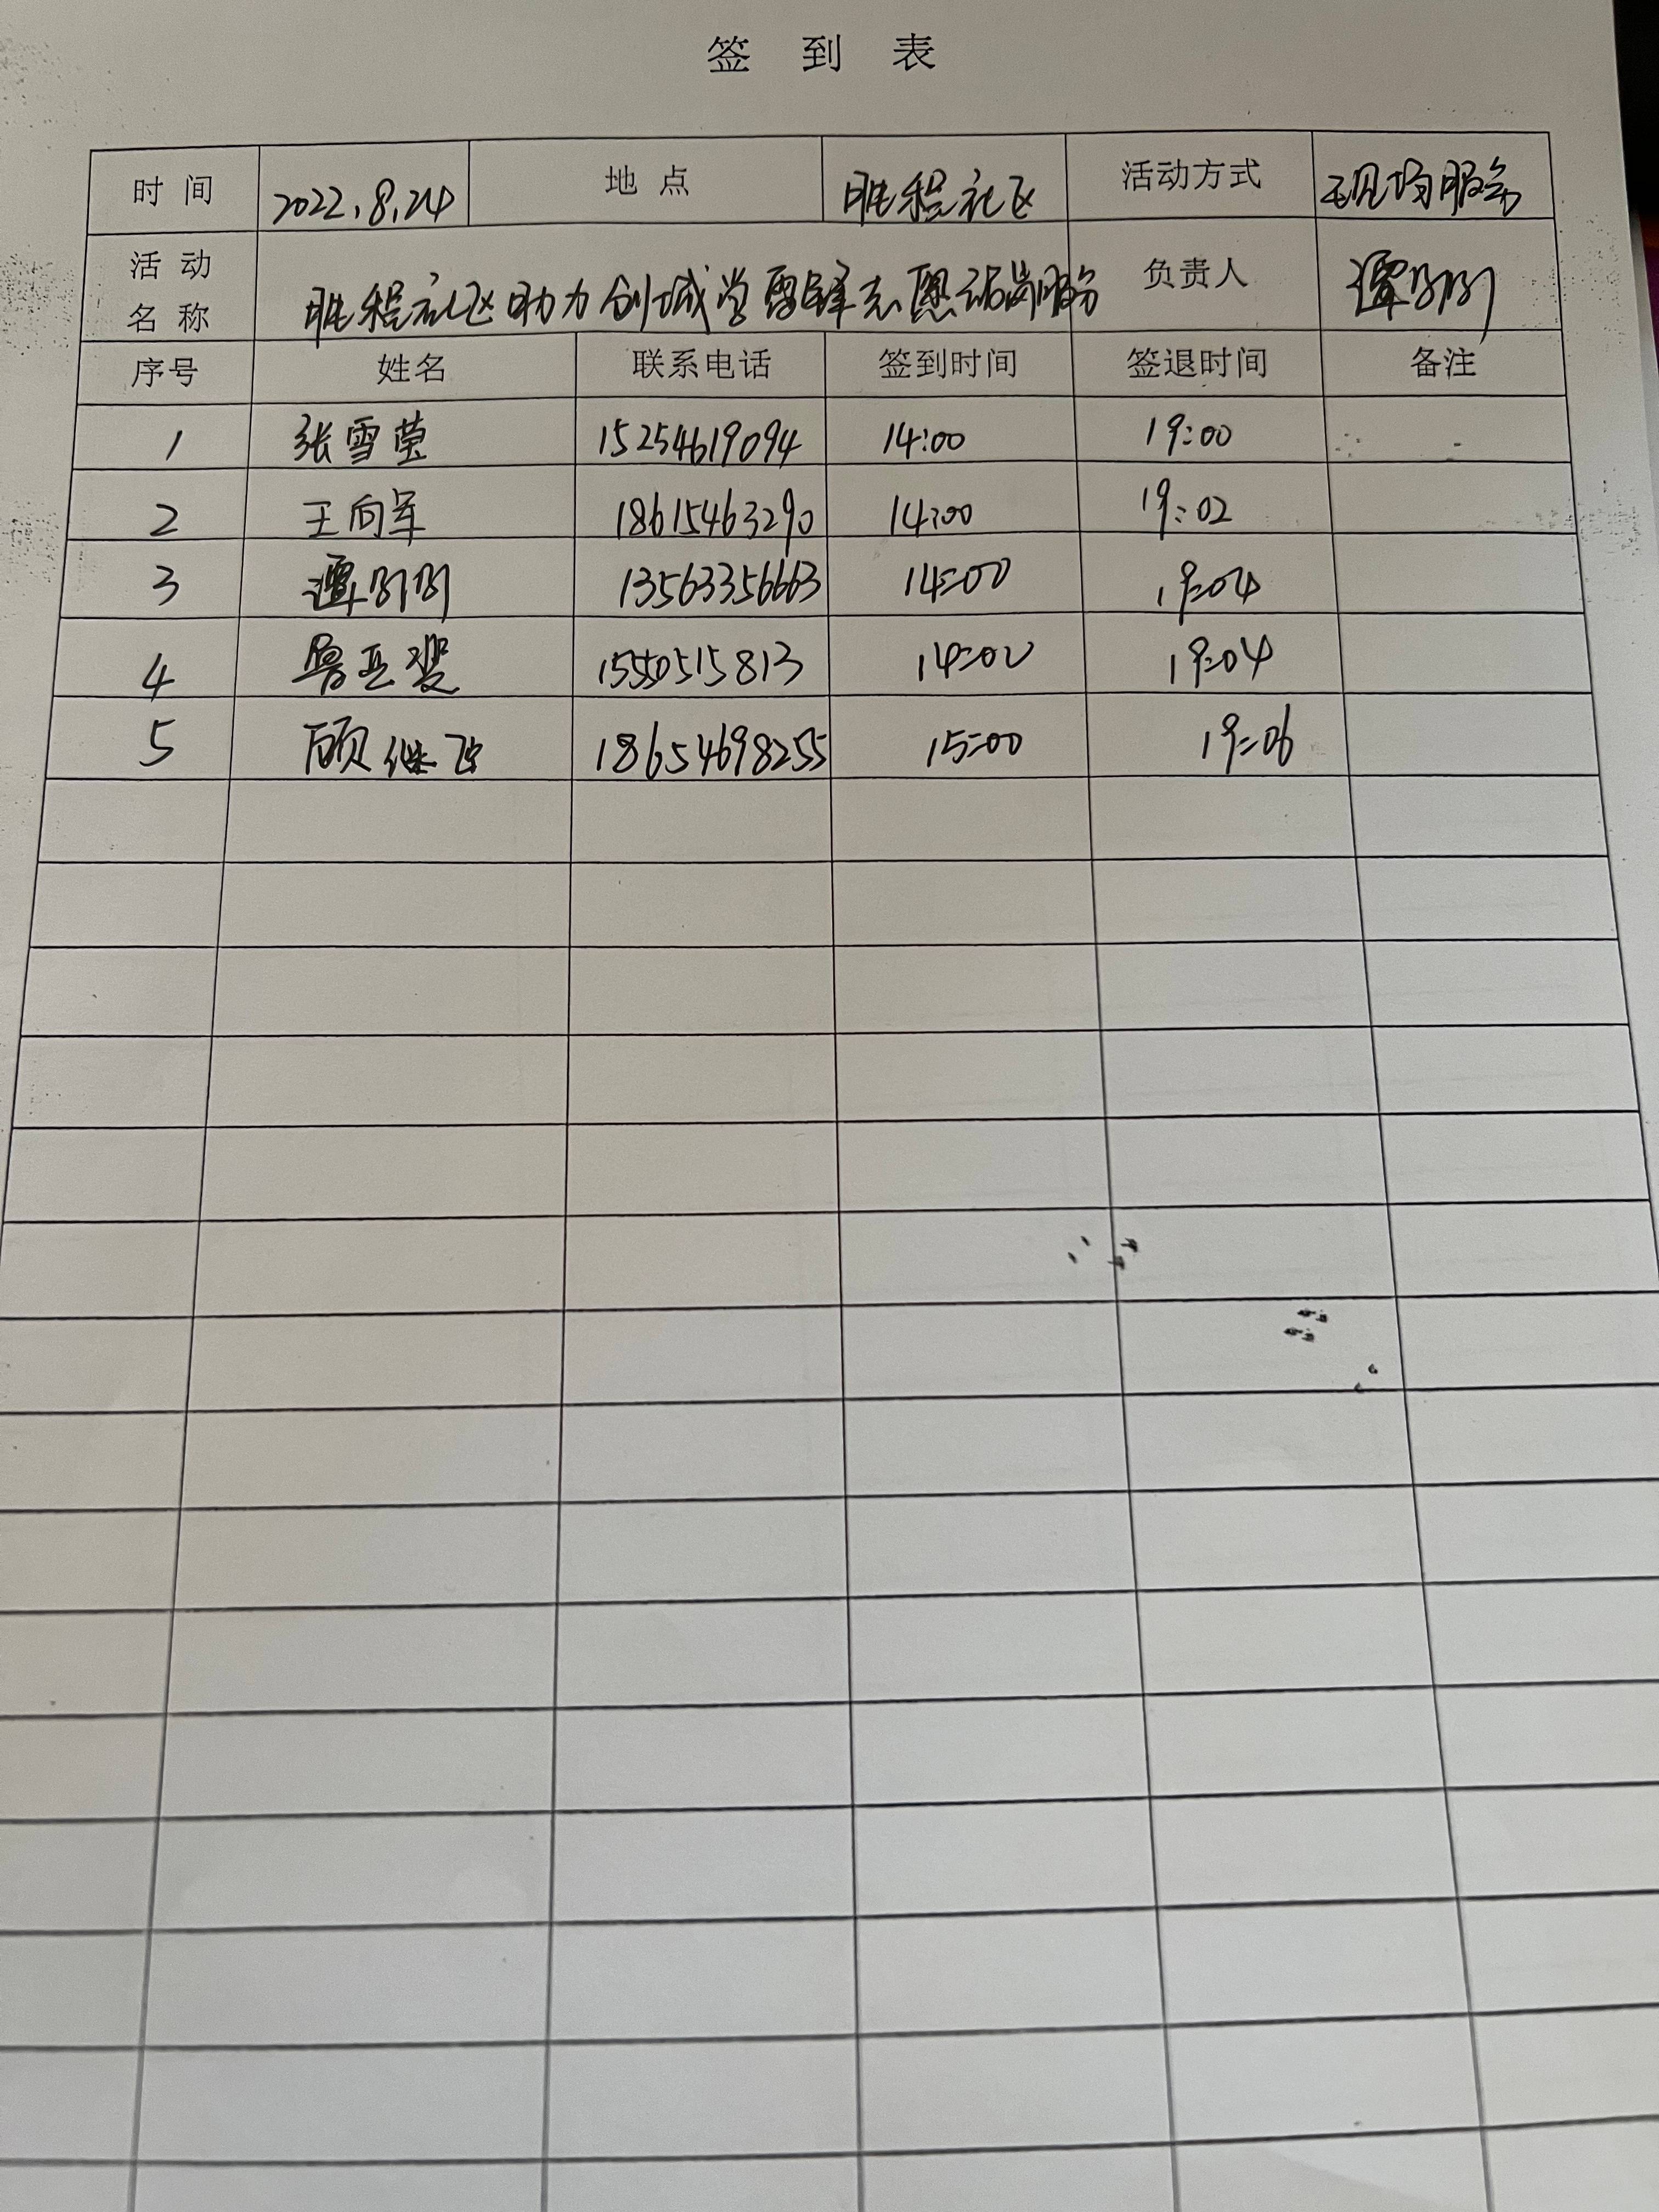 签 到 表
时 间 2022.8.24 地 点 胜程社区 活动方式 现场服务
活 动 名 称 胜程社区助力创城学雷锋志愿站岗服务 负责人 谭刚刚
序号 姓名 联系电话 签到时间 签退时间 备注
1 张雪莹 15254619094 14:00 19:00
2 王向军 18615463290 14:00 19:02
3 谭刚刚 13563356663 14:00 19:04
4 14:00 19:04
5 顾继飞 18654698255 15:00 19:06